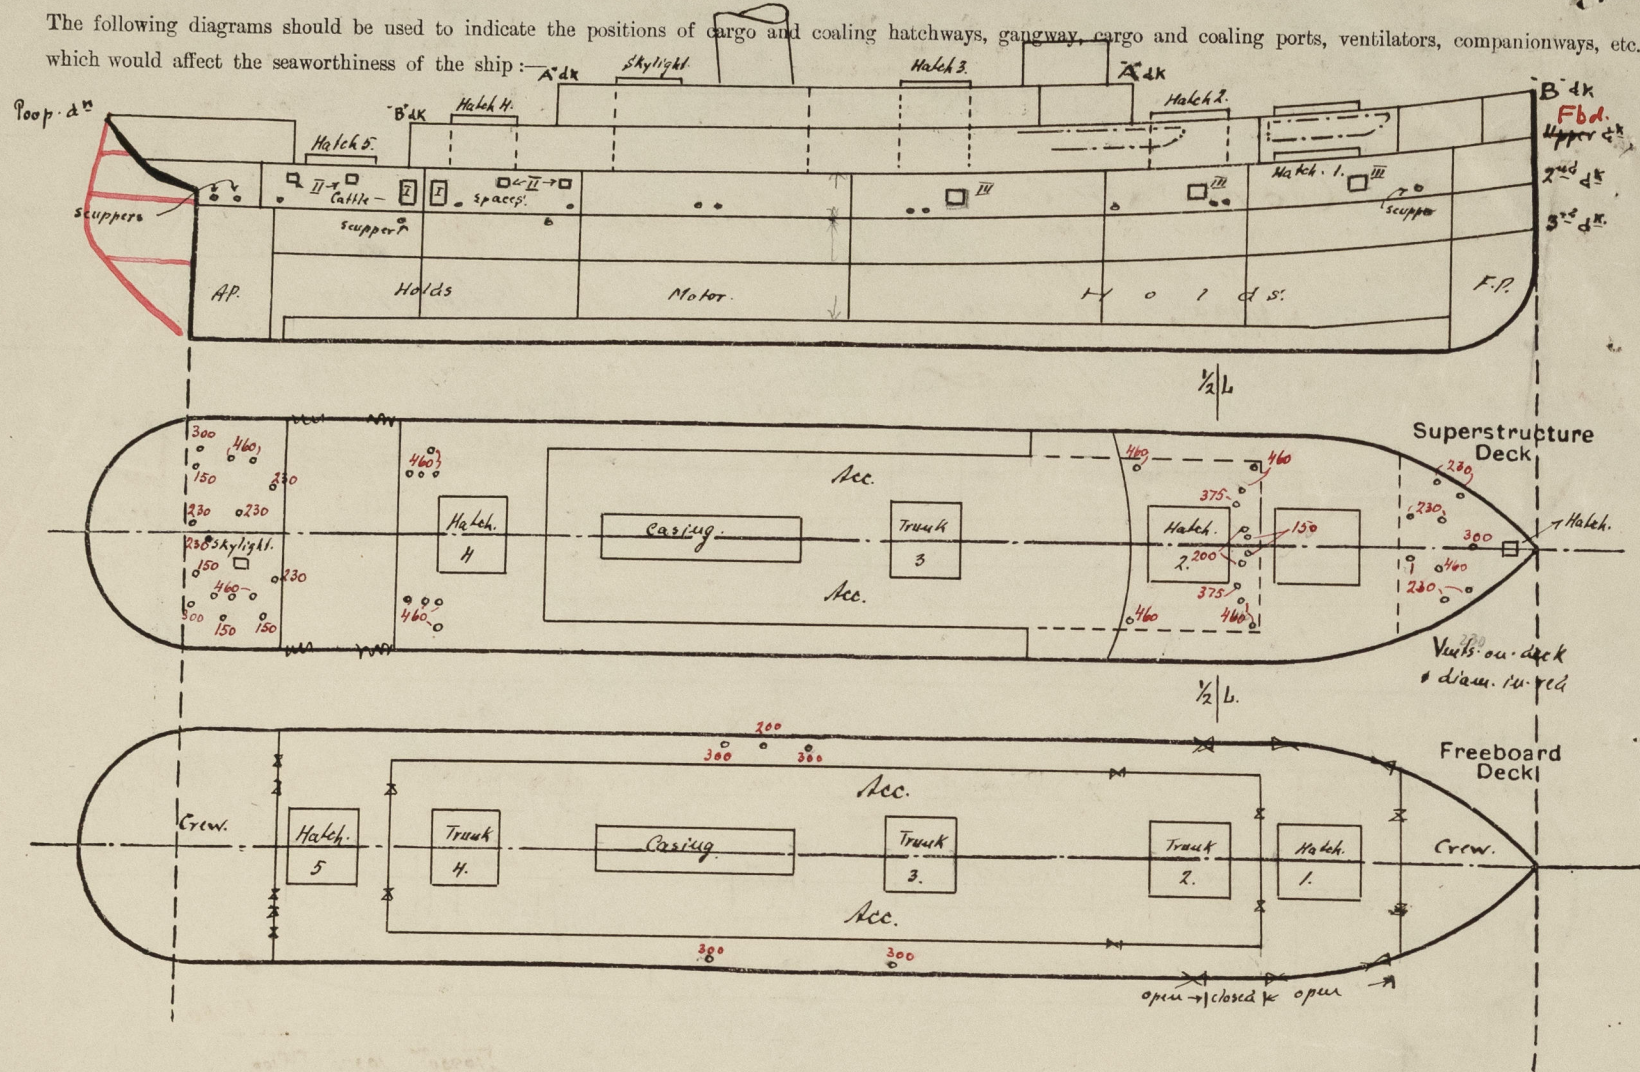 The following diagrams should be used to indicate the positions of cargo and coaling hatchways, gangway, cargo and coaling ports, ventilators, companionways, etc.
which would affect the seaworthiness of the ship :—
"A" dk
Skylight.
Hatch 3.
"A" dk
"B" dk
Poop. dᵏ
"B" dk
Hatch 4.
Hatch 2.
Fbd.
Upper dᵏ
Hatch 5.
Hatch. 1.
III
2nd dᵏ
II
Cattle
I
I
II
Spaces.
III
III
scuppers
scupper
scupper
3rd dᵏ.
AP.
Holds
Motor.
Holds.
F.P.
½ L
Superstructure
Deck
300
460
150
230
230
230
230
Skylight.
150
230
460
300
150
150
460
460
Hatch.
4
Casing.
Acc.
Acc.
Trunk
3
460
460
375
Hatch.
2.
150
200
375
460
460
230
230
300
Hatch.
460
230
230
Vents. on. deck
diam. in. red
½ L.
Freeboard
Deck
200
300
300
Acc.
Crew.
Hatch.
5
Trunk
4.
Casing
Trunk
3.
Trunk
2.
Hatch.
1.
Crew.
Acc.
300
300
open
closed
open